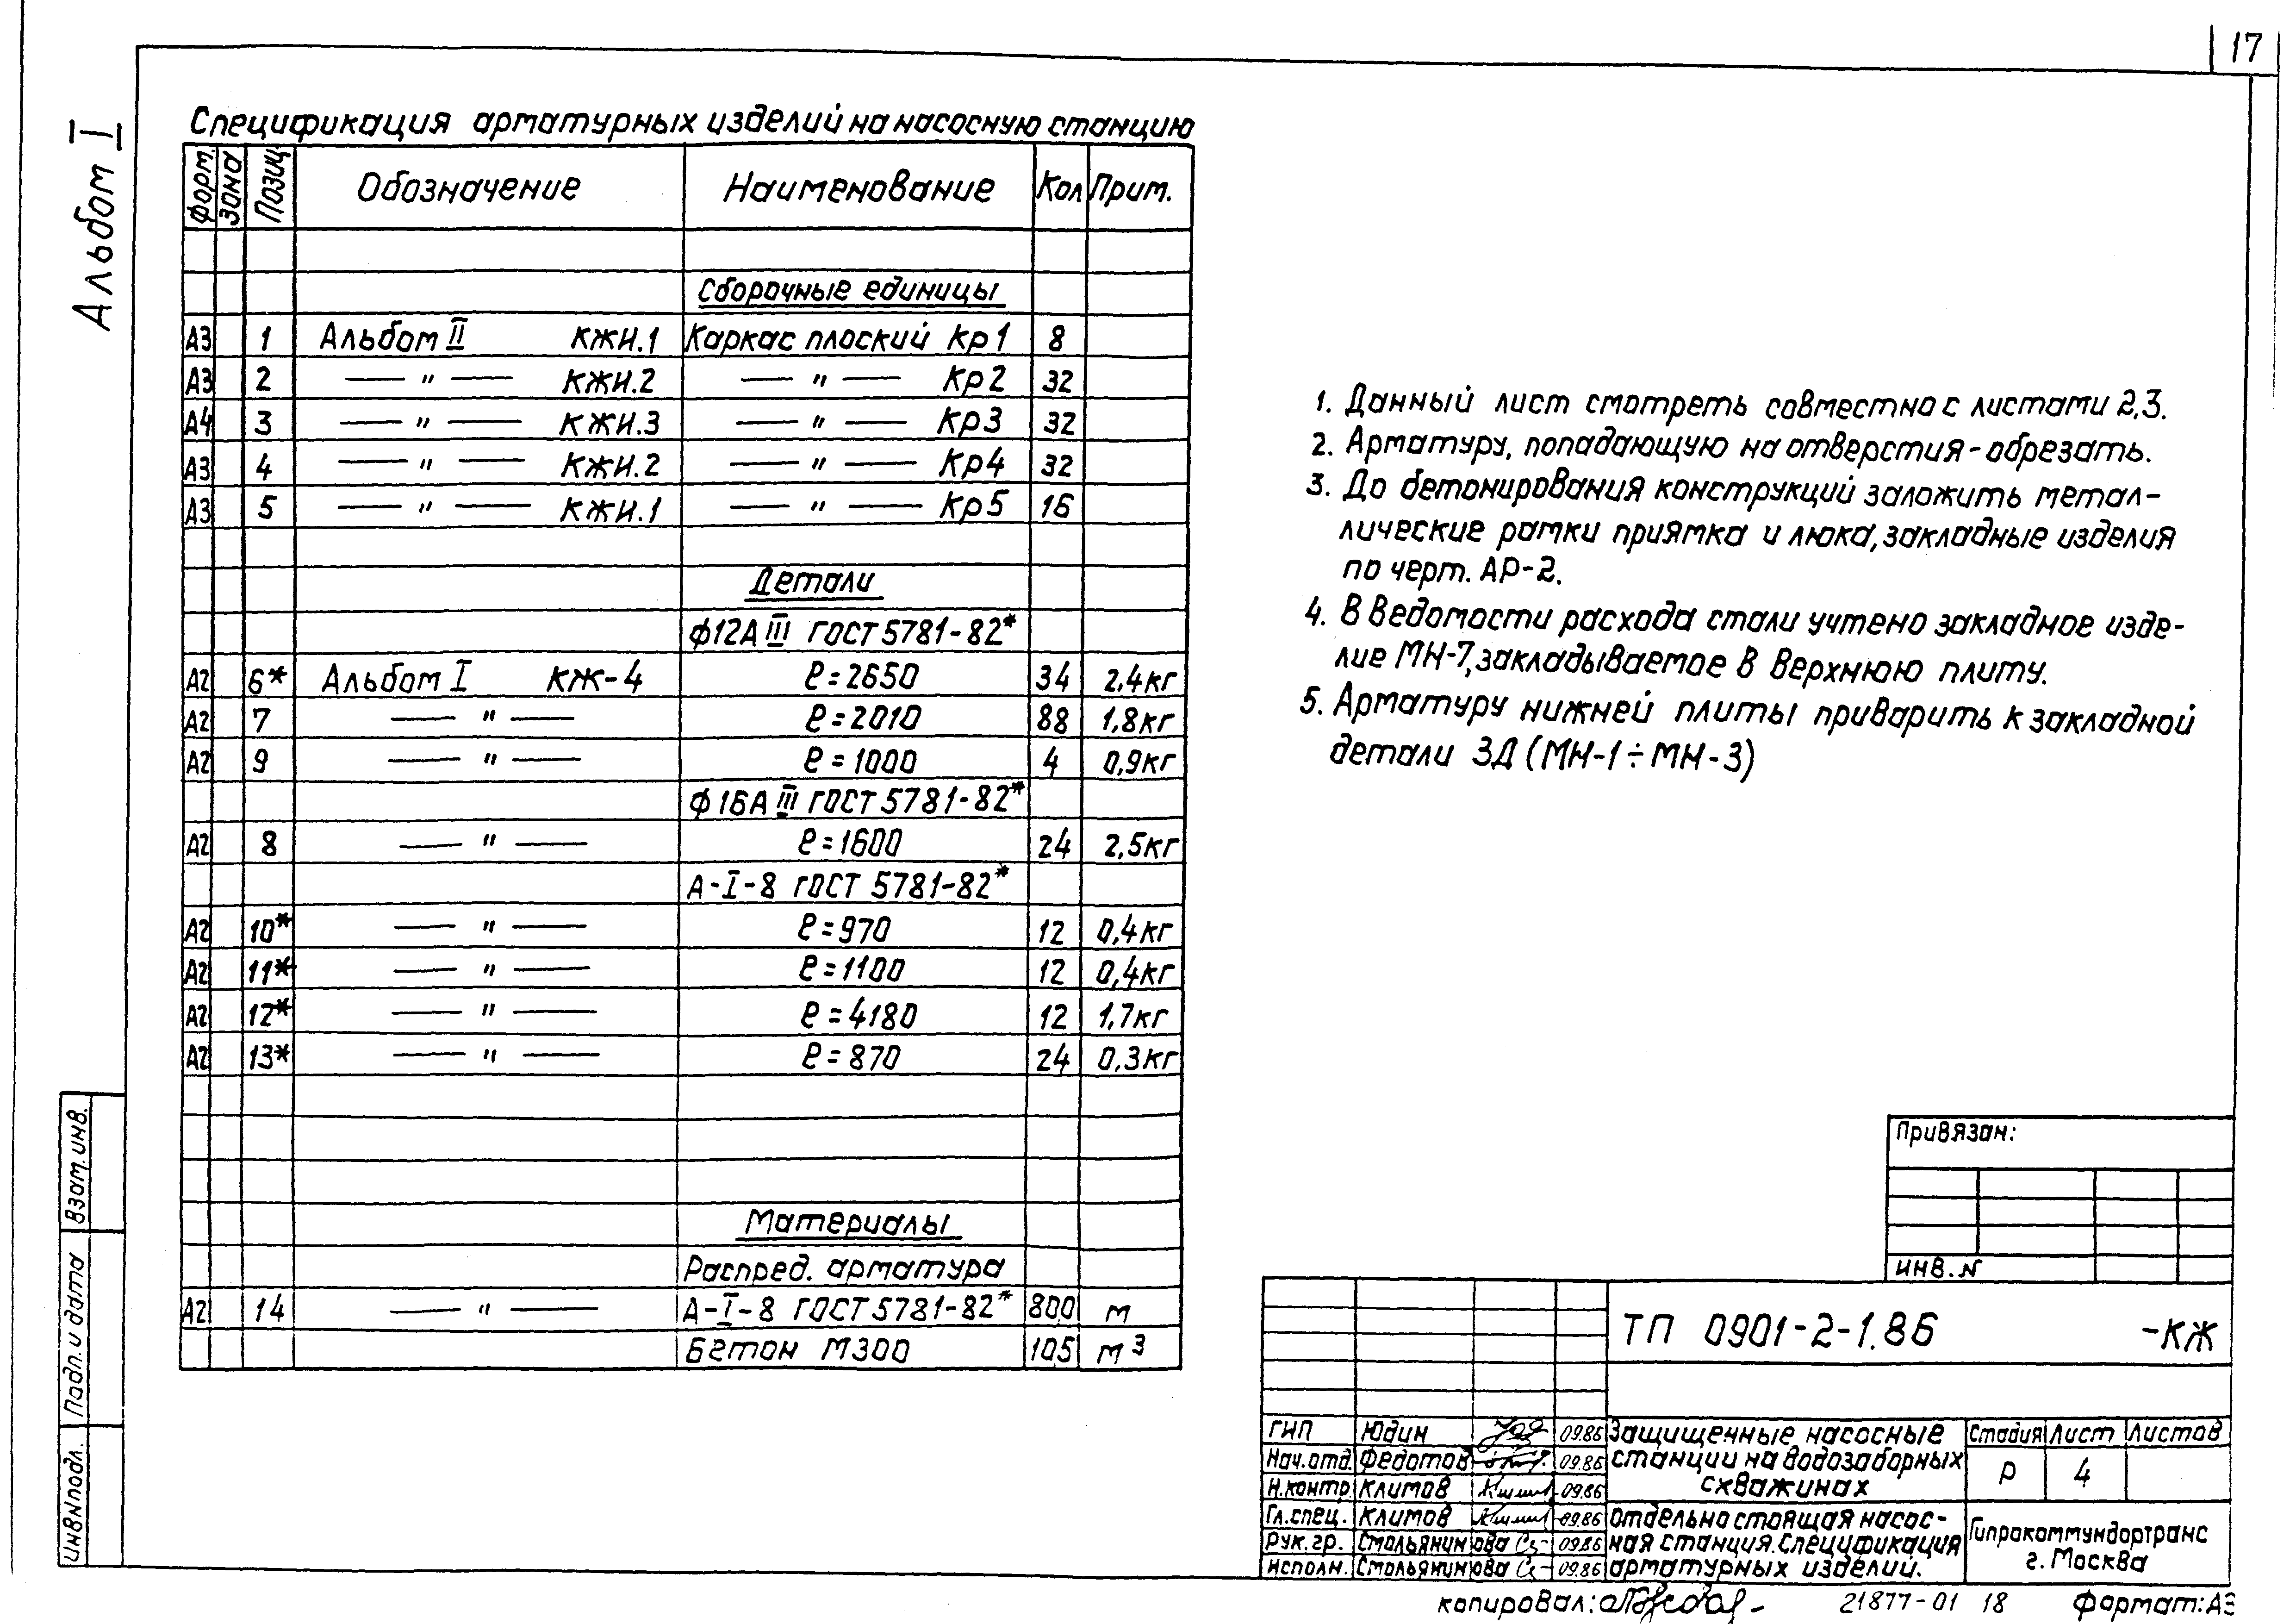 17
Альбом I
Спецификация арматурных изделий на насосную станцию
Форм. Зона Позиц. Обозначение Наименование Кол Прим.
Сборочные единицы
А3 1 Альбом II КЖИ.1 Каркас плоский Кр1 8
А3 2 — " — КЖИ.2 — " — Кр2 32
А4 3 — " — КЖИ.3 — " — Кр3 32
А3 4 — " — КЖИ.2 — " — Кр4 32
А3 5 — " — КЖИ.1 — " — Кр5 16
Детали
ф12А III ГОСТ 5781-82*
А2 6* Альбом I КЖ-4 ℓ=2650 34 2,4кг
А2 7 — " — ℓ=2010 88 1,8кг
А2 9 — " — ℓ=1000 4 0,9кг
ф16А III ГОСТ 5781-82*
А2 8 — " — ℓ=1600 24 2,5кг
А-I-8 ГОСТ 5781-82*
А2 10* — " — ℓ=970 12 0,4кг
А2 11* — " — ℓ=1100 12 0,4кг
А2 12* — " — ℓ=4180 12 1,7кг
А2 13* — " — ℓ=870 24 0,3кг
Материалы
Распред. арматура
А2 14 — " — А-I-8 ГОСТ 5781-82* 800 м
Бетон М300 105 м³
1. Данный лист смотреть совместно с листами 2,3.
2. Арматуру, попадающую на отверстия-обрезать.
3. До бетонирования конструкций заложить метал-
лические рамки приямка и люка, закладные изделия
по черт. АР-2.
4. В Ведомости расхода стали учтено закладное изде-
лие МН-7, закладываемое в верхнюю плиту.
5. Арматуру нижней плиты приварить к закладной
детали ЗД (МН-1÷МН-3)
Привязан:
ИНВ. N
ТП 0901-2-1.86 -КЖ
ГИП Юдин 09.86
Нач.отд. Федотов 09.86
Н.контр. Климов 09.86
Гл.спец. Климов 09.86
Рук.гр. Смольянинова 09.86
Исполн. Смольянинова 09.86
Защищенные насосные
станции на водозаборных
скважинах
Стадия Лист Листов
Р 4
Отдельно стоящая насос-
ная станция. Спецификация
арматурных изделий.
Гипрокоммундортранс
г. Москва
Взам. инв.
Подп. и дата
ИНВ N подл.
копировал:
21877-01 18 Формат: А3